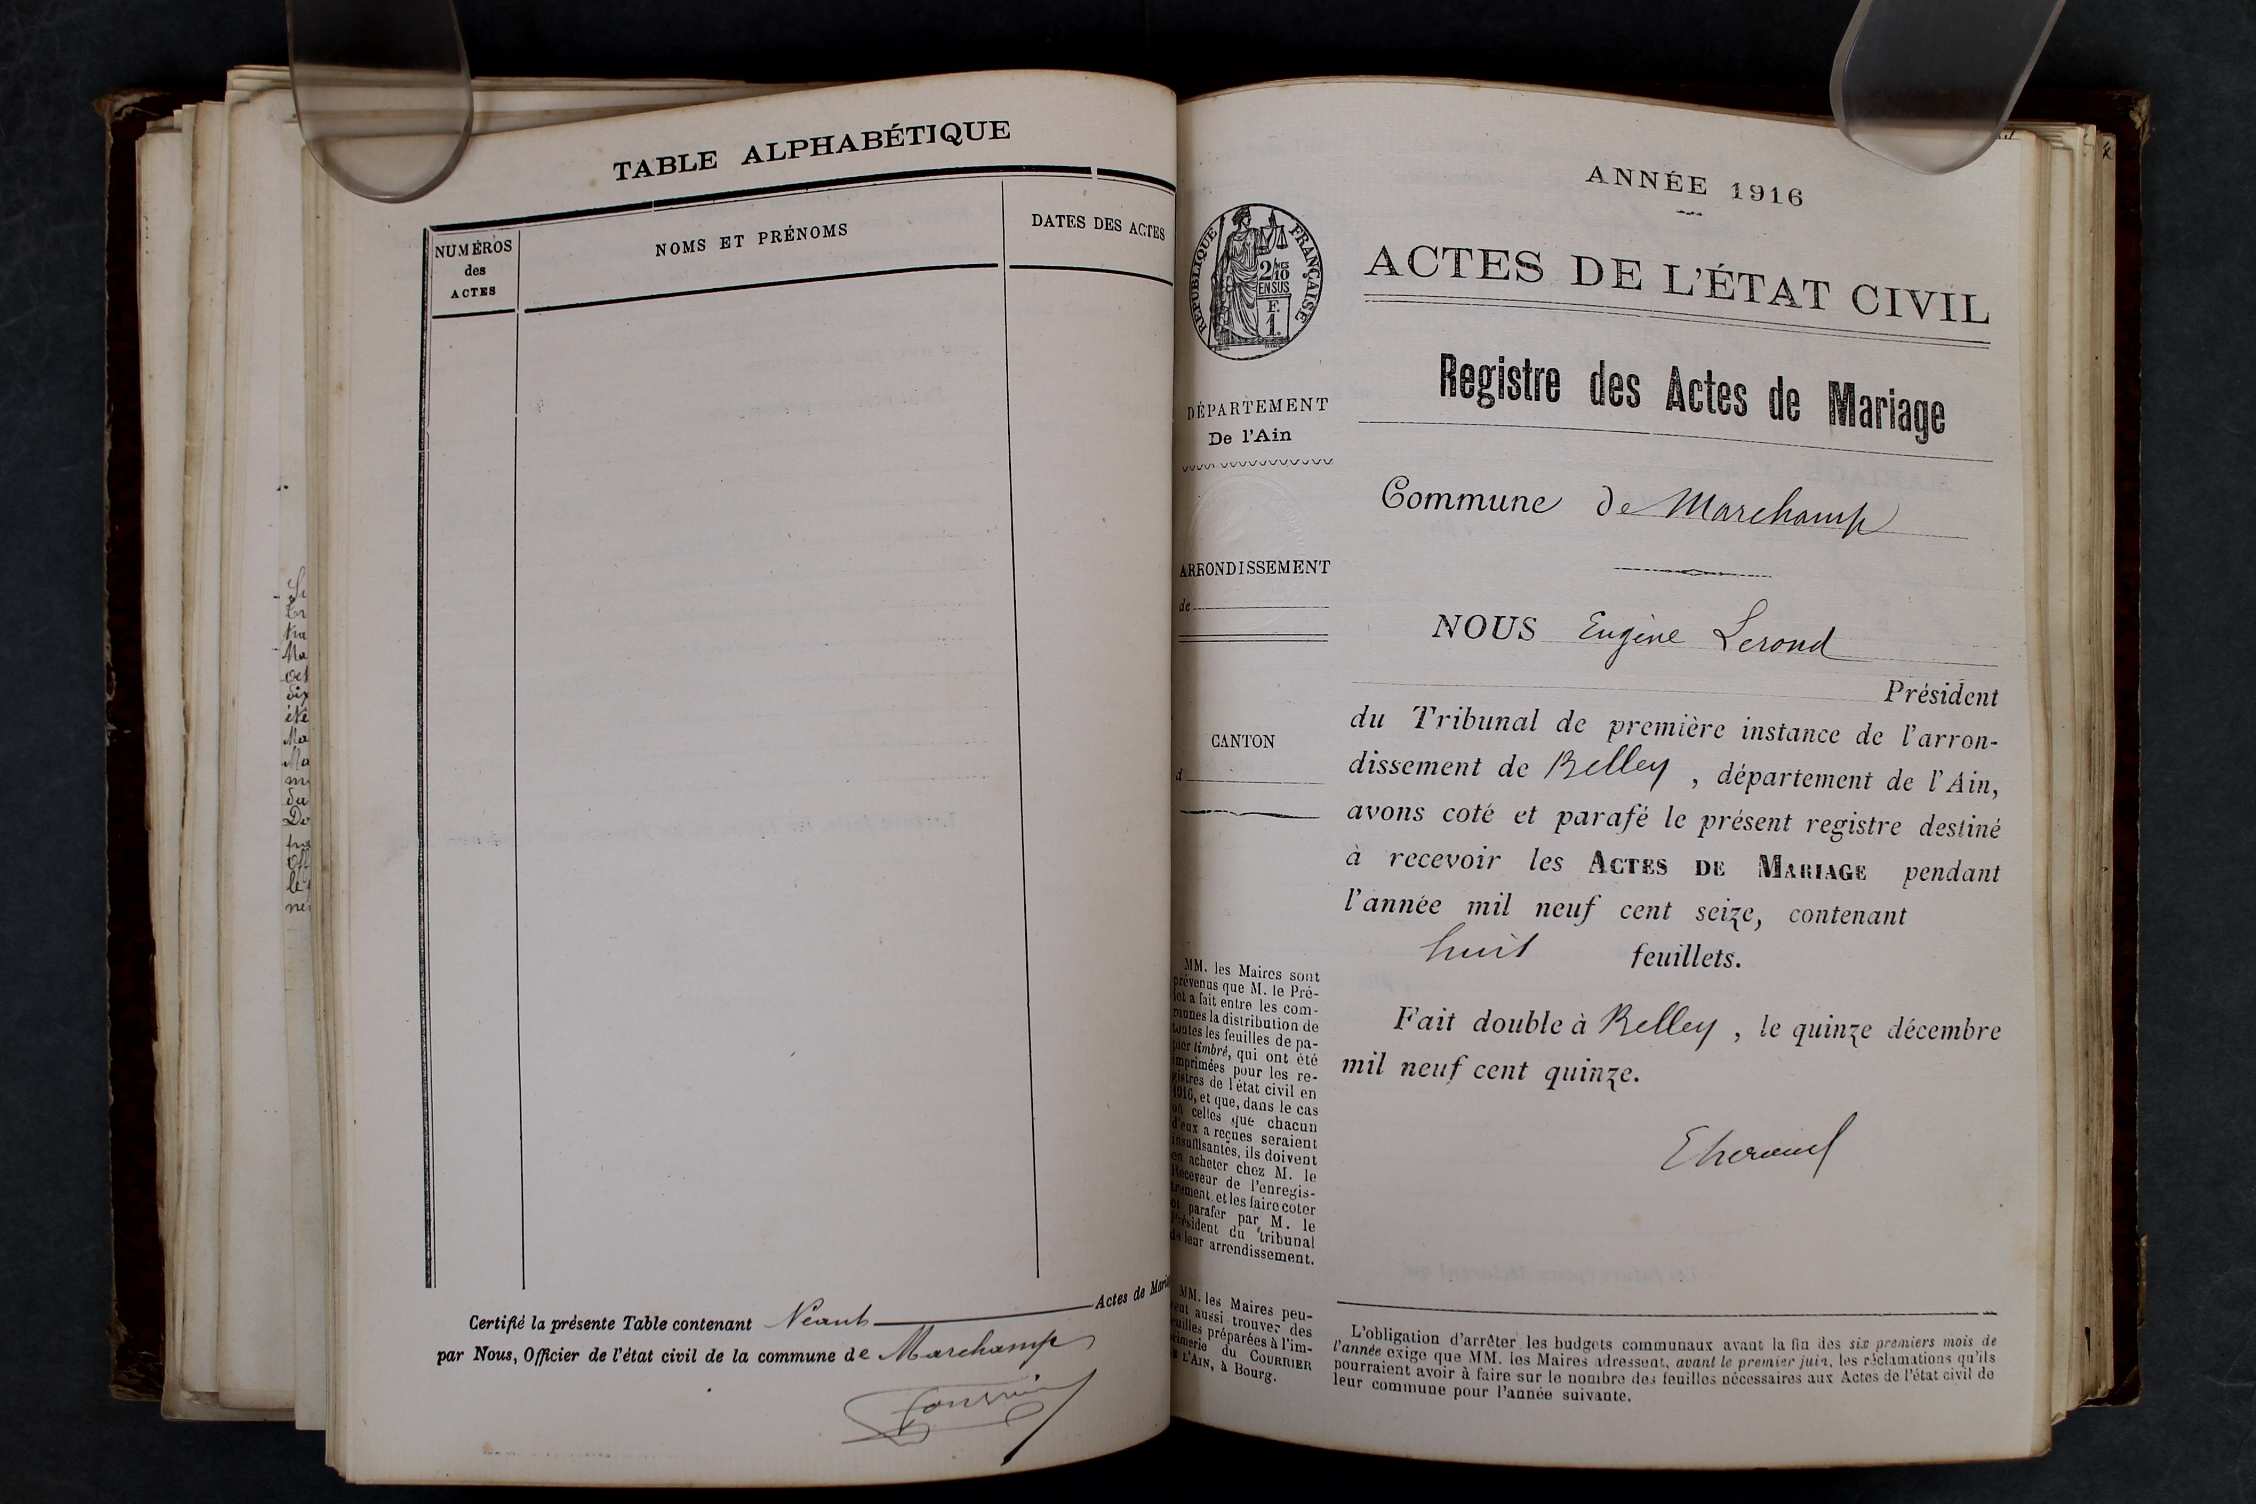 TABLE ALPHABÉTIQUE
NUMÉROS
des
ACTES
NOMS ET PRÉNOMS
DATES DES ACTES
Certifié la présente Table contenant Néant Actes de
par Nous, Officier de l'état civil de la commune de Marchamp
ANNÉE 1916
RÉPUBLIQUE FRANÇAISE
2/10 MES
EN SUS
F.
1.
ACTES DE L'ÉTAT CIVIL
Registre des Actes de Mariage
DÉPARTEMENT
De l'Ain
Commune de Marchamp
ARRONDISSEMENT
de
NOUS Eugène Lerond
Président
du Tribunal de première instance de l'arron-
CANTON
d
dissement de Belley, département de l'Ain,
avons coté et parafé le présent registre destiné
à recevoir les ACTES DE MARIAGE pendant
l'année mil neuf cent seize, contenant
huit feuillets.
Fait double à Belley, le quinze décembre
mil neuf cent quinze.
MM. les Maires sont
prévenus que M. le Pré-
fet a fait entre les com-
munes la distribution de
toutes les feuilles de pa-
pier timbré, qui ont été
imprimées pour les re-
gistres de l'état civil en
1916, et que, dans le cas
où celles que chacun
d'eux a reçues seraient
insuffisantes, ils doivent
en acheter chez M. le
Receveur de l'enregis-
trement et les faire coter
et parafer par M. le
Président du tribunal
de leur arrondissement.
MM. les Maires peu-
vent aussi trouver des
feuilles préparées à l'im-
primerie du COURRIER
DE L'AIN, à Bourg.
L'obligation d'arrêter les budgets communaux avant la fin des six premiers mois de
l'année exige que MM. les Maires adressent, avant le premier juin, les réclamations qu'ils
pourraient avoir à faire sur le nombre des feuilles nécessaires aux Actes de l'état civil de
leur commune pour l'année suivante.